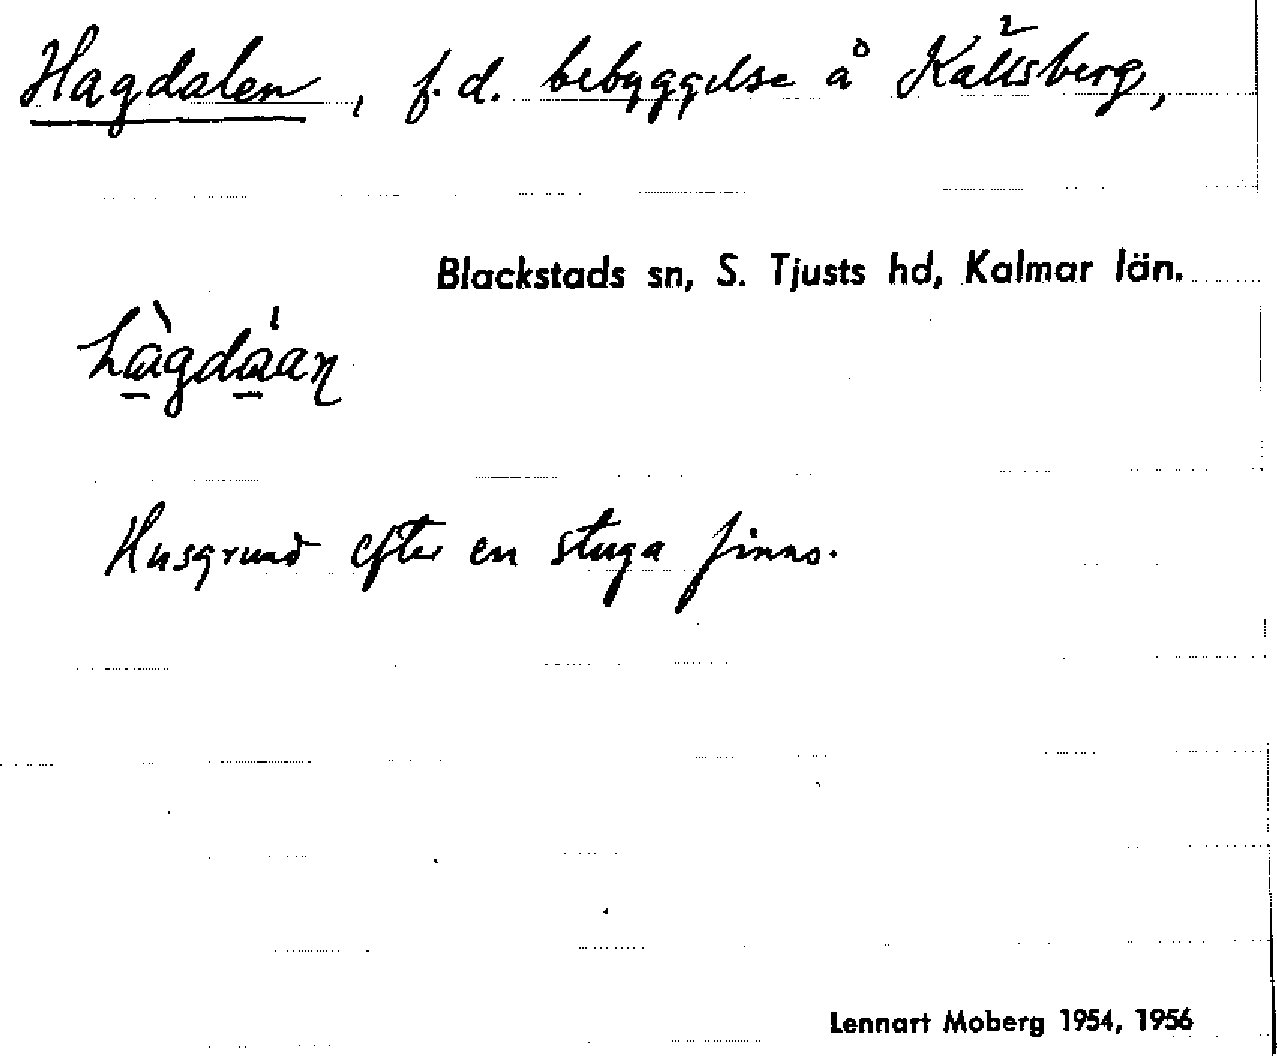 Hagdalen, f.d. bebyggelse å Källsberg,
Blackstads sn, S. Tjusts hd, Kalmar län.
hàgdáan
Husgrund efter en stuga finns.
Lennart Moberg 1954, 1956